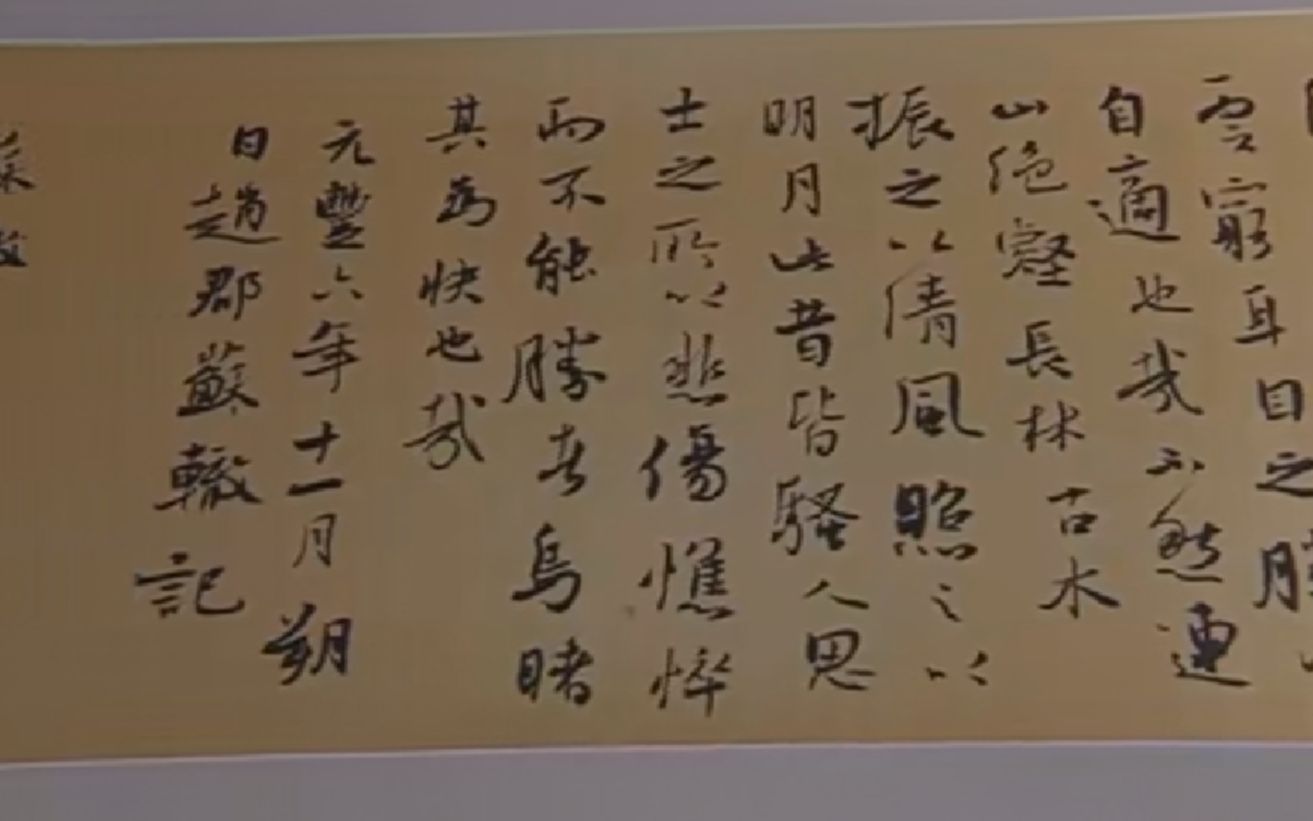 雲窮耳目之勝
自適也哉不然連
山絕壑長林古木
振之以清風照之以
明月此昔皆騷人思
士之所以悲傷憔悴
而不能勝者烏睹
其為快也哉
元豐六年十一月朔
日趙郡蘇轍記